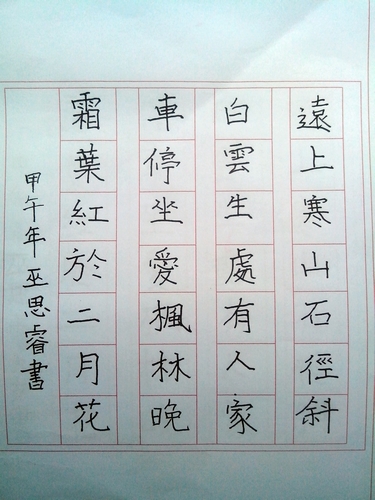 遠上寒山石徑斜
白雲生處有人家
車停坐愛楓林晚
霜葉紅於二月花
甲午年巫思睿書